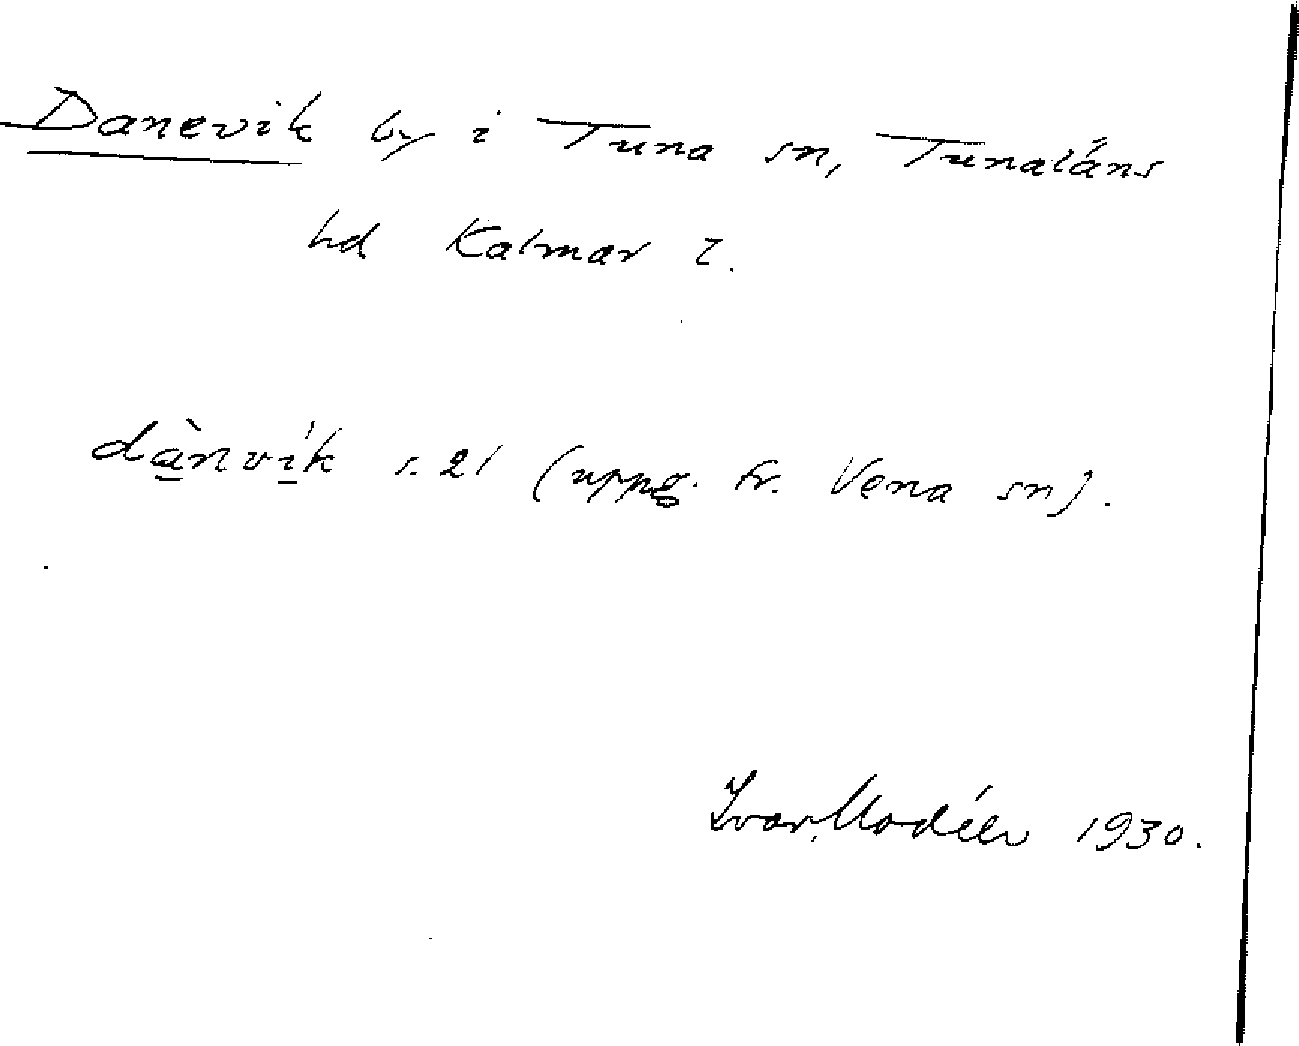 Danevik by i Tuna sn, Tunaläns
hd Kalmar l.
dànvi̱k s. 21 (uppg. fr. Vena sn).
Ivar Modéer 1930.